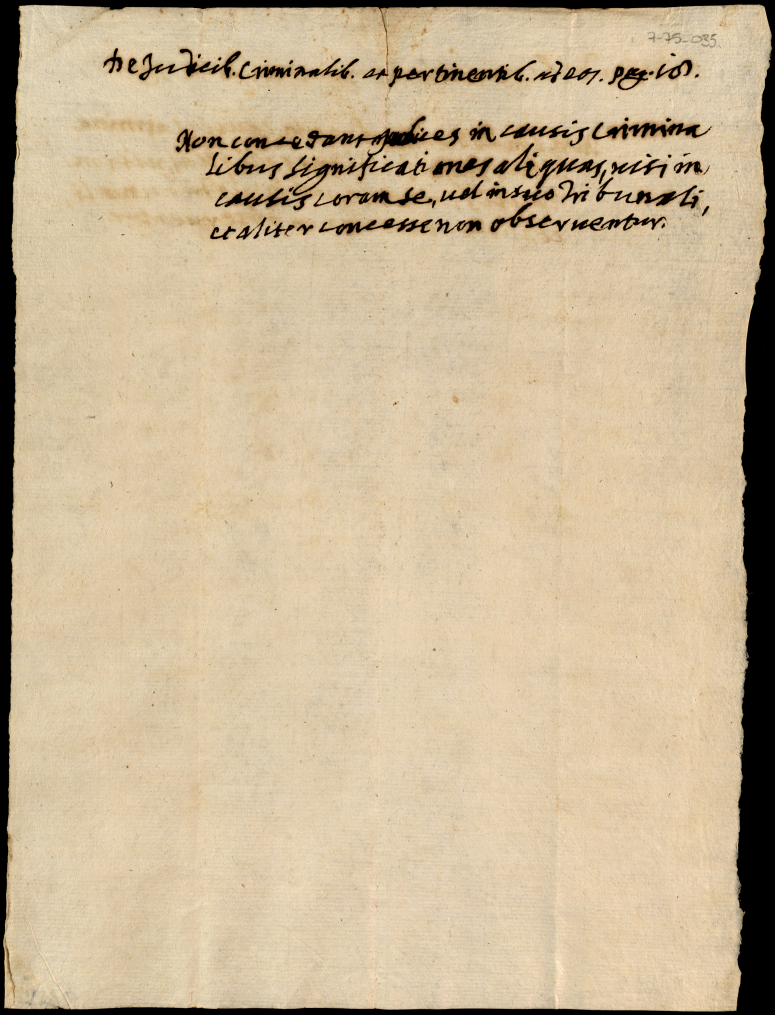 7-75-035
De Judicib. Criminalib. et pertinentib. ad eos. pag.
Non concedant Judices in causis Crimina
libus significationes aliquas, nisi in
causis coram se, vel in suo Tribunali,
et aliter concesse non observentur.